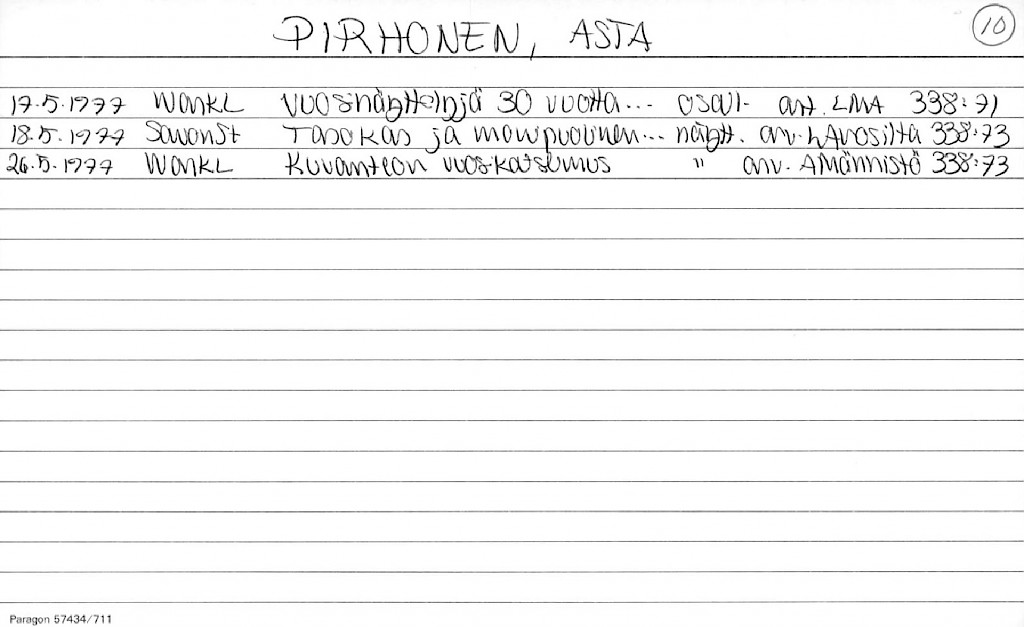 PIRHONEN, ASTA
10
17.5.1977 WarkL Vuosinäyttelyjä 30 vuotta... osall. art. LMA 338:71
18.5.1977 SavonSt Tasokas ja monipuolinen... näytt. arv. LAvosilta 338:73
26.5.1977 WarkL Kuvanteon vuosikatselmus " arv. AMännistö 338:73
Paragon 57434/711